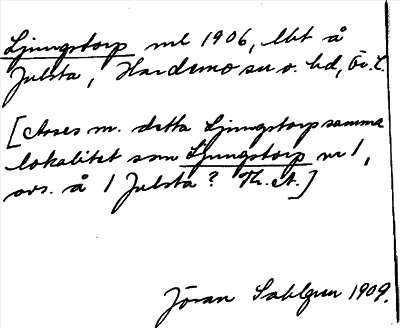 Ljungstorp nl 1906, lht å
Julsta, Hardemo sn o. hd, Ör. l.
[Avses m. detta Ljungstorp samma
lokalitet som Ljungstorp nr 1,
avs. å 1 Julsta? Th. A.]
Jöran Sahlgren 1909.